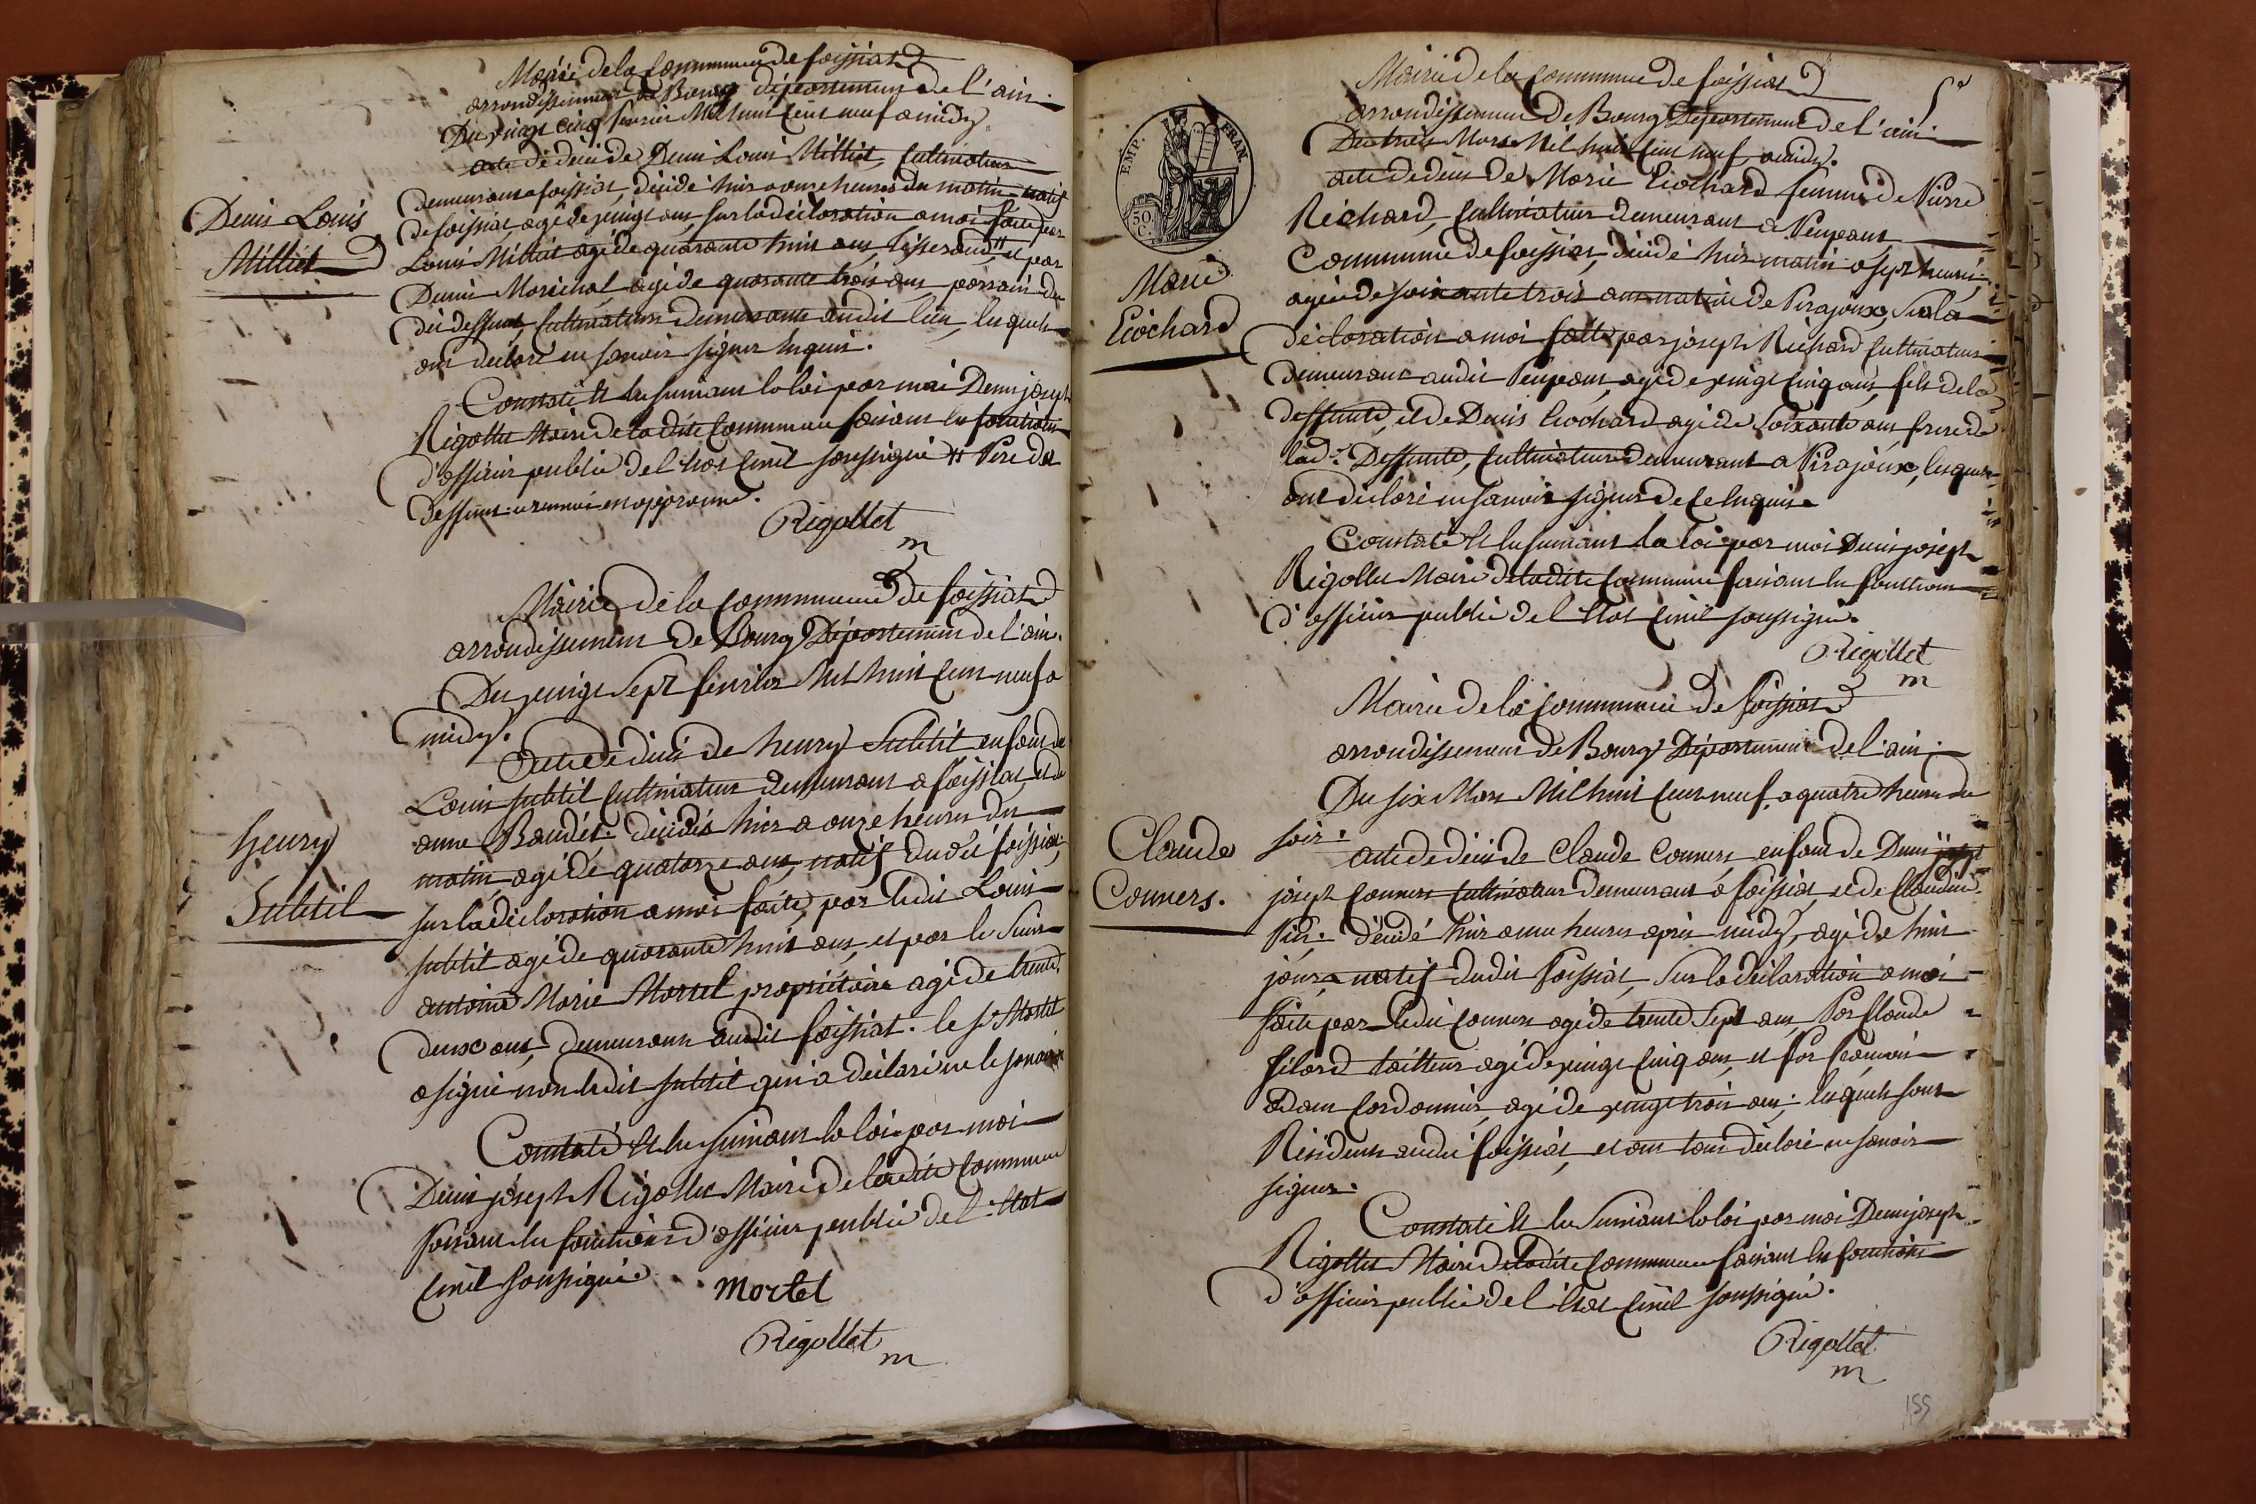 Mairie de la Commune de foissiat
arrondissement de Bourg département de l'ain.
Du vingt cinq fevrier Mil huit Cent neuf a midy
acte de décé de Denis Louis Milliet, Cultivateur
demeurant a foissiat, décédé hier a onze heures du matin natif
de foissiat agé de vingt ans, sur la déclaration a moi faite par
Louis Milliet agé de quarante huit ans, tisserand # et par
Denis Maréchal agé de quarante trois ans parrain du
dit deffunt, Cultivateurs demeurants audit lieu, lesquels
ont declaré ne savoir signer enquis.
Constaté et lu suivant la loi par moi Denis joseph
Rigollet Maire de la dite Commune faisant les fonctions
d'officier public de l'état Civil soussigné # Pere du
deffunt renvoi en approuvé.
Rigollet
m
Denis Louis
Milliet
Mairie de la Commune de foissiat
arrondissement de Bourg Département de l'ain.
Du vingt Sept fevrier Mil huit Cent neuf a
midy.
Acte de décés de henry Subtil enfant de
Louis Subtil Cultivateur demeurant a foissiat, et de
anne Baudet. décédé hier a onze heures du
matin agé de quatorze ans, natif dudit foissiat,
sur la déclaration a moi faite par ledit Louis
Subtil agé de quarante huit ans, et par le Sieur
antoine Marie Mortel propriétaire agé de trente
deux ans, demeurans audit foissiat. le sr Mortel
a signé non ledit Subtil qui a déclaré ne le savoir
Constaté et lu suivant la loi par moi
Denis joseph Rigollet Maire de ladite Commune
faisant les fonctions d'officier public de l'état
Civil soussigné. Mortel
Rigollet
m
henry
Subtil
5e
Mairie de la Commune de foissiat
arrondissement de Bourg Département de l'ain.
Du trois Mars Mil huit Cent neuf, a midy.
acte de décés de Marie Ecochard femme de Pierre
Réchard, Cultivateur demeurant a Peupant
Commune de foissiat, décédé hier matin a sept heures
agée de soixante trois ans native de Pirajoux, Sur la
déclaration a moi faite par joseph Réchard Cultivateur
demeurant audit Peupant, agé de vingt cinq ans, fils de la
deffunte, et de Denis Ecochard agé de Soixante ans frere de
lad.e Deffunte, Cultivateur demeurant a Pirajoux, lesquels
ont declaré ne savoir signer de ce enquis.
Constaté et lu suivant la loi par moi Denis joseph
Rigollet Maire de ladite Commune faisant les fonctions
d'officier public de l'état Civil soussigné.
Rigollet
m
EMP. FRAN.
50
C.
Marie
Ecochard
Mairie de la Commune de foissiat
arrondissement de Bourg Département de l'ain.
Du six Mars Mil huit Cent neuf, a quatre heures du
soir.
acte de décés de Claude Convers, enfant de Denis
joseph Convers Cultivateur demeurant a foissiat, et de Claudine
Pin. décédé hier a une heures après midy, agé de huit
jours, natif dudit foissiat, Sur la déclaration a moi
faite par ledit Convers agé de trente Sept ans, Par Claude
filard tailleur agé de vingt Cinq ans, et Par françois
adam Cordonnier, agé de vingt trois ans; lesquels sont
Résidents audit foissiat, et ont tous déclaré ne savoir
signer.
Constaté et lu Suivant la loi par moi Denis joseph
Rigollet Maire de ladite Commune faisant les fonctions
d'officier public de l'état Civil soussigné.
Rigollet
m
Claude
Convers.
155